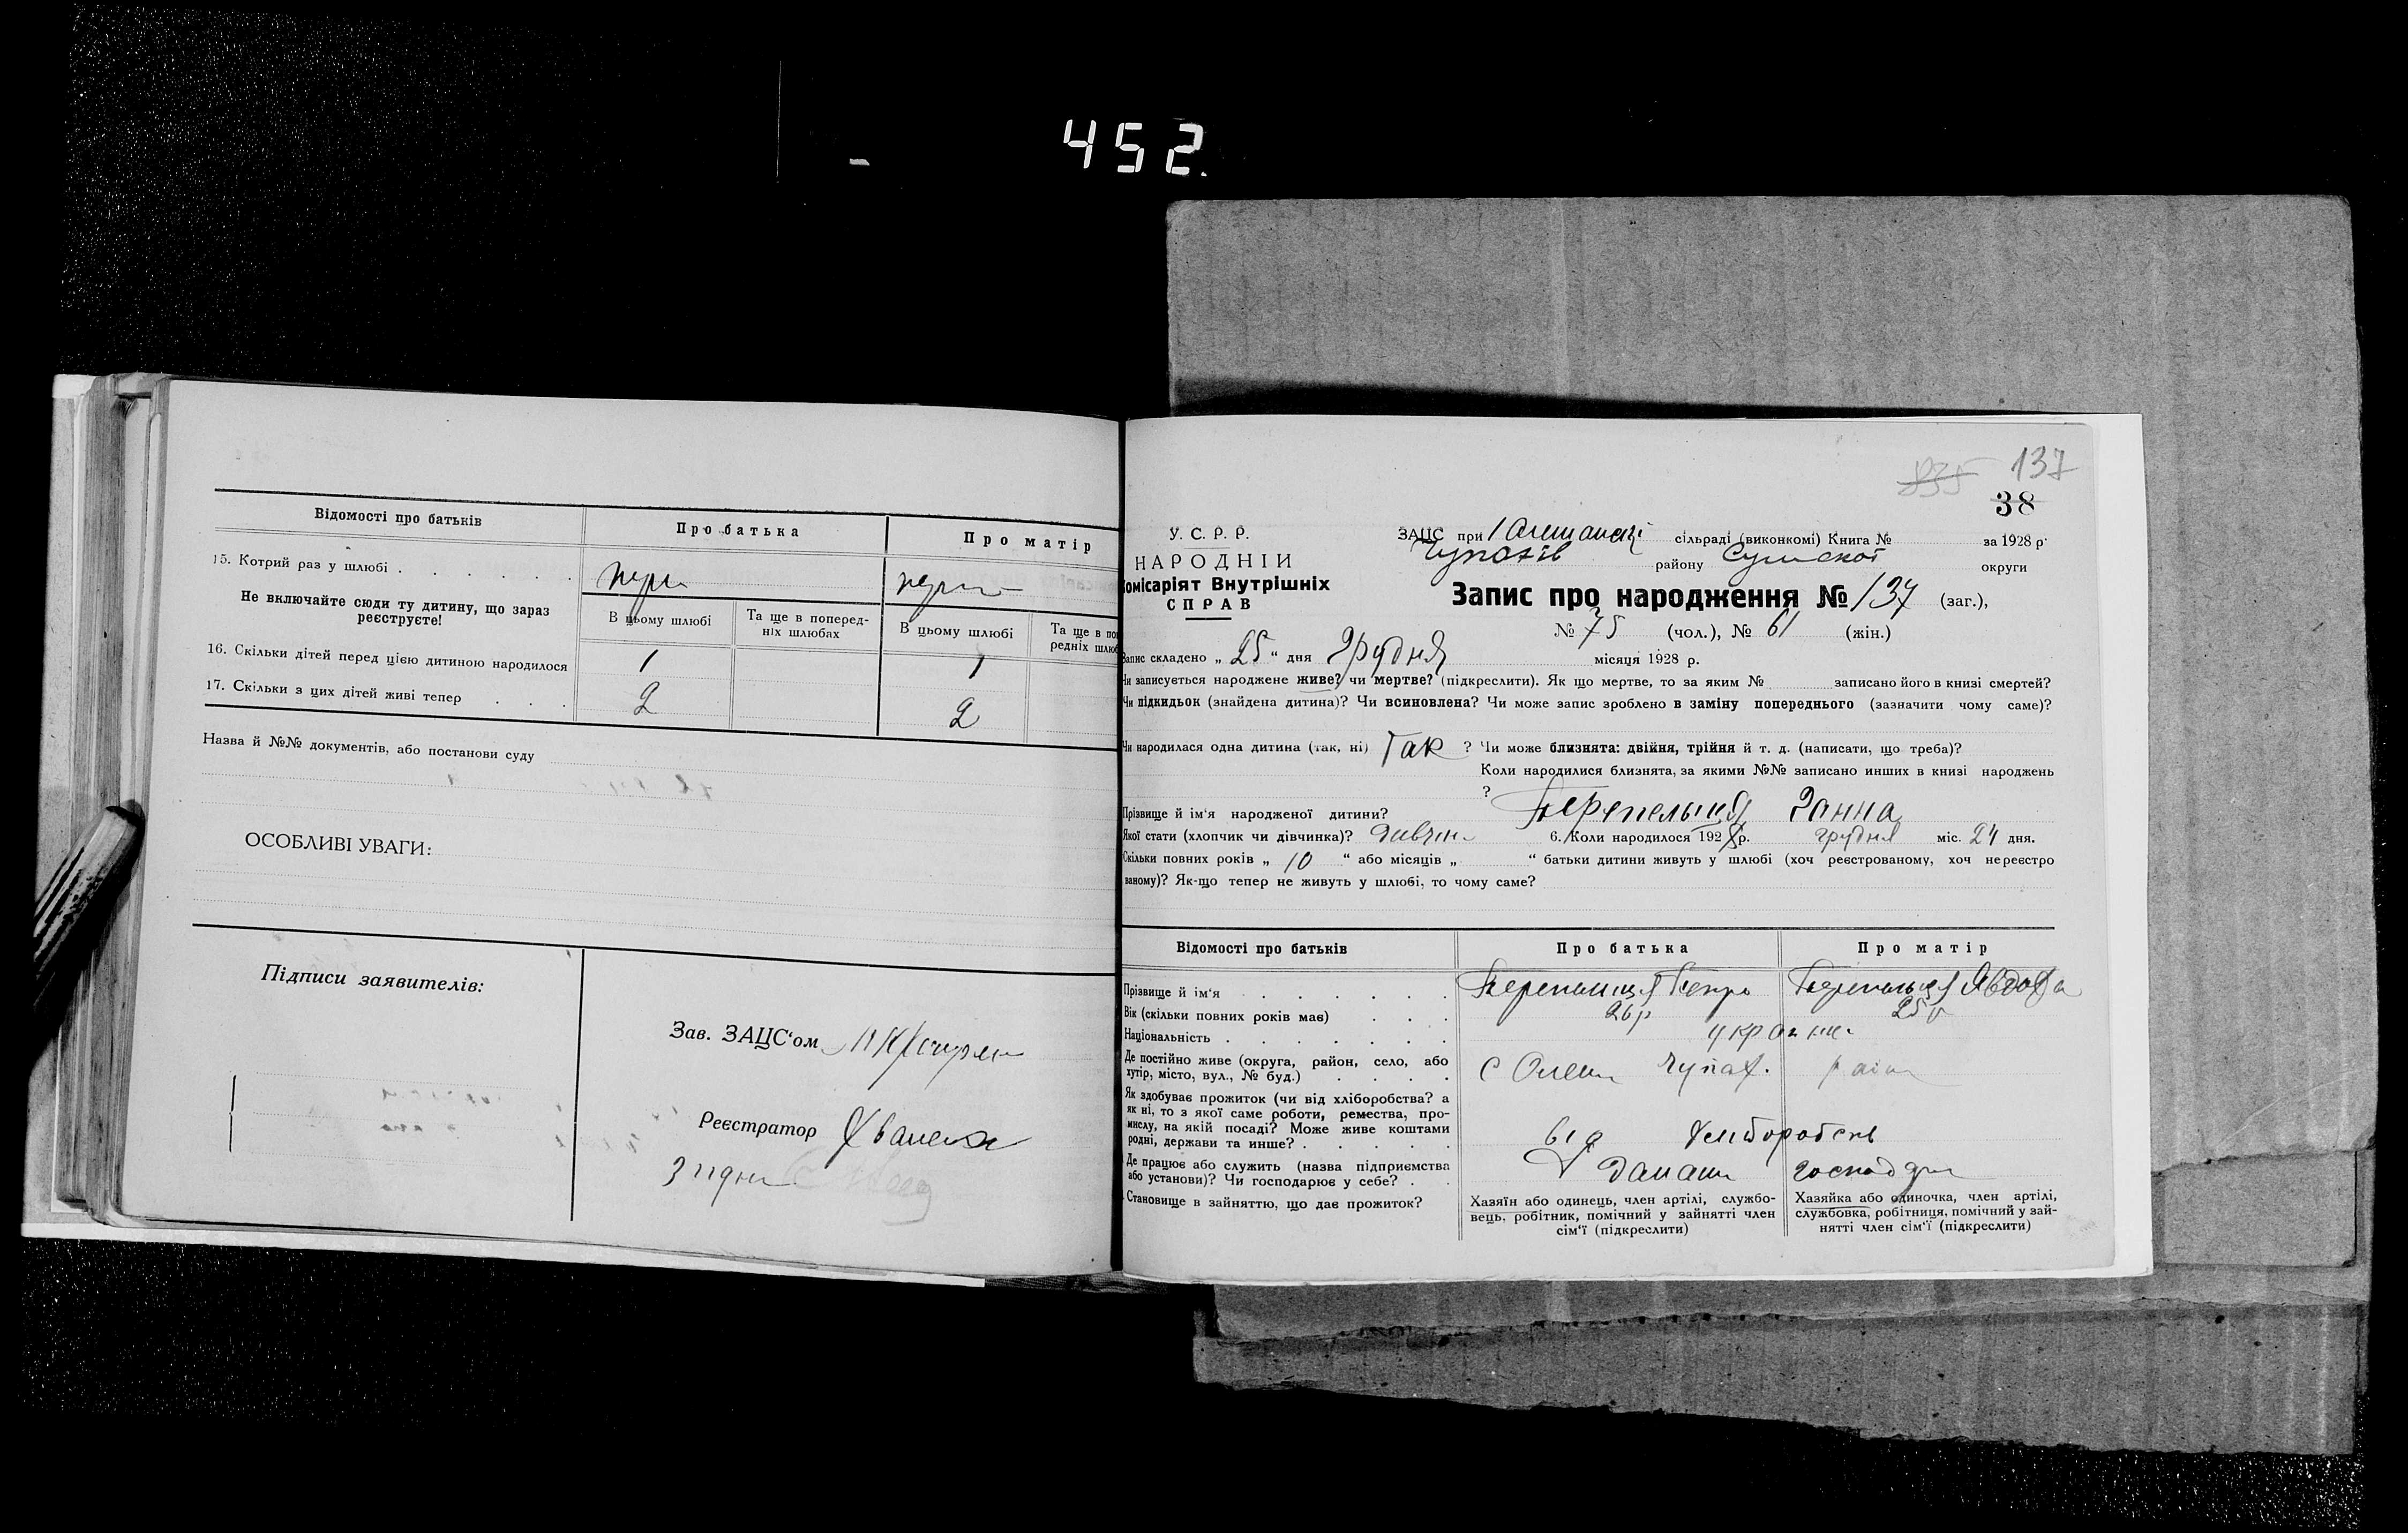 452.
Відомості про батьків Про батька Про матір
15. Котрий раз у шлюбі . . . . . . .
Не включайте сюди ту дитину, що зараз реєструєте!
В цьому шлюбі Та ще в попередніх шлюбах В цьому шлюбі Та ще в по редніх шлюб
16. Скільки дітей перед цією дитиною народилося 1 1
17. Скільки з цих дітей живі тепер . . . 2 2
Назва й №№ документів, або постанови суду
ОСОБЛИВІ УВАГИ:
Підписи заявителів:
Зав. ЗАЦС'ом
Реєстратор
137
38
У. С. Р. Р.
НАРОДНІЙ
Комісаріят Внутрішніх
СПРАВ
ЗАЦС при сільраді (виконкомі) Книга № за 1928 р.
району Сумської округи
Запис про народження № 137 (заг.),
№ 75 (чол.), № 61 (жін.)
Запис складено „ 25 “ дня Грудня місяця 1928 р.
Чи записується народжене живе? чи мертве? (підкреслити). Як що мертве, то за яким № записано його в книзі смертей?
Чи підкидьок (знайдена дитина)? Чи всиновлена? Чи може запис зроблено в заміну попереднього (зазначити чому саме)?
Чи народилася одна дитина (так, ні) Так ? Чи може близнята: двійня, трійня й т. д. (написати, що треба)?
Коли народилися близнята, за якими №№ записано инших в книзі народжень
?
Прізвище й ім'я народженої дитини? Перепелиця Ганна
Якої стати (хлопчик чи дівчинка)? 6. Коли народилося 1928 р. грудня міс. 24 дня.
Скільки повних років „ 10 “ або місяців „ “ батьки дитини живуть у шлюбі (хоч реєстрованому, хоч нереєстро
ваному)? Як-що тепер не живуть у шлюбі, то чому саме?
Відомості про батьків Про батька Про матір
Прізвище й ім'я . . . . . . Перепелиця Петро Перепелиця Явдоха
Вік (скільки повних років має) . . . 26 р 25 р
Національність . . . . . . .
Де постійно живе (округа, район, село, або
хутір, місто, вул., № буд.) . . . . с
Як здобуває прожиток (чи від хліборобства? а
як ні, то з якої саме роботи, ремества, про-
мислу, на якій посаді? Може живе коштами
родні, держави та инше? . . . . . від
Де працює або служить (назва підприємства
або установи)? Чи господарює у себе? . .
Становище в зайняттю, що дає прожиток?
Хазяїн або одинець, член артілі, службо-
вець, робітник, помічний у зайнятті член
сім'ї (підкреслити)
Хазяйка або одиночка, член артілі,
службовка, робітниця, помічний у зай-
нятті член сім'ї (підкреслити)